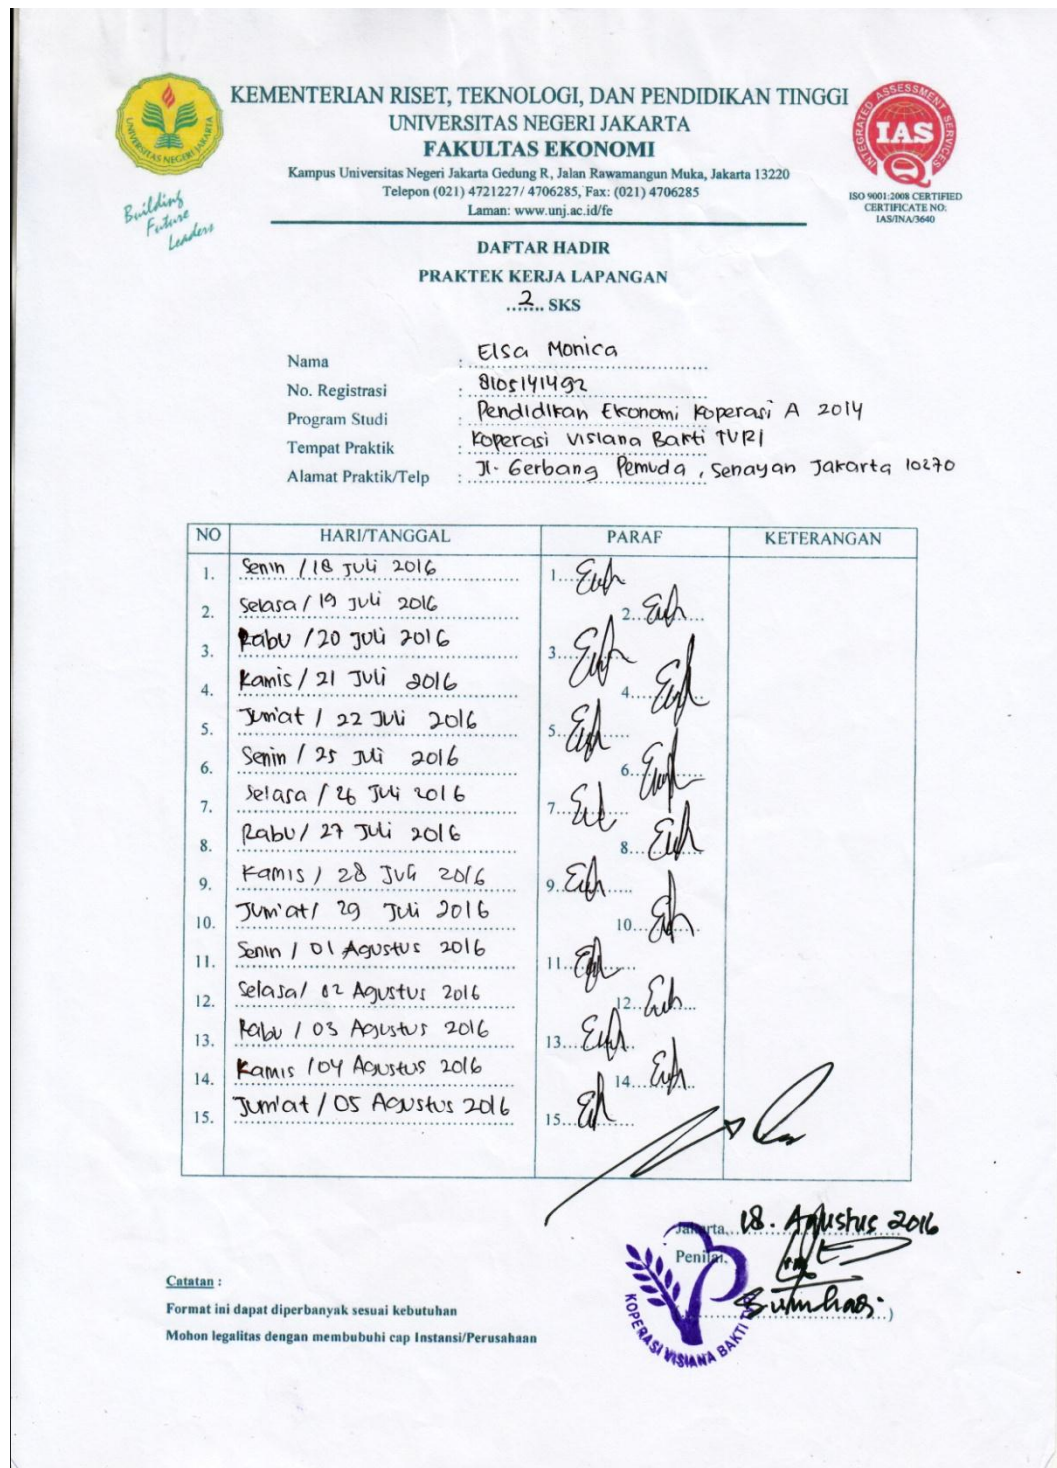 KEMENTERIAN RISET, TEKNOLOGI, DAN PENDIDIKAN TINGGI
UNIVERSITAS NEGERI JAKARTA
FAKULTAS EKONOMI
Kampus Universitas Negeri Jakarta Gedung R, Jalan Rawamangun Muka, Jakarta 13220
Telepon (021) 4721227/ 4706285, Fax: (021) 4706285
Laman: www.unj.ac.id/fe
UNIVERSITAS NEGERI JAKARTA
Building
Future
Leaders
INTEGRATED ASSESSMENT SERVICES
IAS
Q
ISO 9001:2008 CERTIFIED
CERTIFICATE NO:
IAS/INA/3640
DAFTAR HADIR
PRAKTEK KERJA LAPANGAN
...2... SKS
Nama : Elsa Monica
No. Registrasi : 8105141492
Program Studi : Pendidikan Ekonomi Koperasi A 2014
Tempat Praktik : Koperasi Visiana Bakti TVRI
Alamat Praktik/Telp : Jl. Gerbang Pemuda, Senayan Jakarta 10270
NO HARI/TANGGAL PARAF KETERANGAN
1. Senin / 18 Juli 2016 1.
2. Selasa / 19 Juli 2016 2.
3. Rabu / 20 Juli 2016 3.
4. Kamis / 21 Juli 2016 4.
5. Jum'at / 22 Juli 2016 5.
6. Senin / 25 Juli 2016 6.
7. Selasa / 26 Juli 2016 7.
8. Rabu / 27 Juli 2016 8.
9. Kamis / 28 Juli 2016 9.
10. Jum'at / 29 Juli 2016 10.
11. Senin / 01 Agustus 2016 11.
12. Selasa / 02 Agustus 2016 12.
13. Rabu / 03 Agustus 2016 13.
14. Kamis / 04 Agustus 2016 14.
15. Jum'at / 05 Agustus 2016 15.
Jakarta, 18. Agustus 2016
Penilai,
KOPERASI VISIANA BAKTI
Catatan :
Format ini dapat diperbanyak sesuai kebutuhan
Mohon legalitas dengan membubuhi cap Instansi/Perusahaan